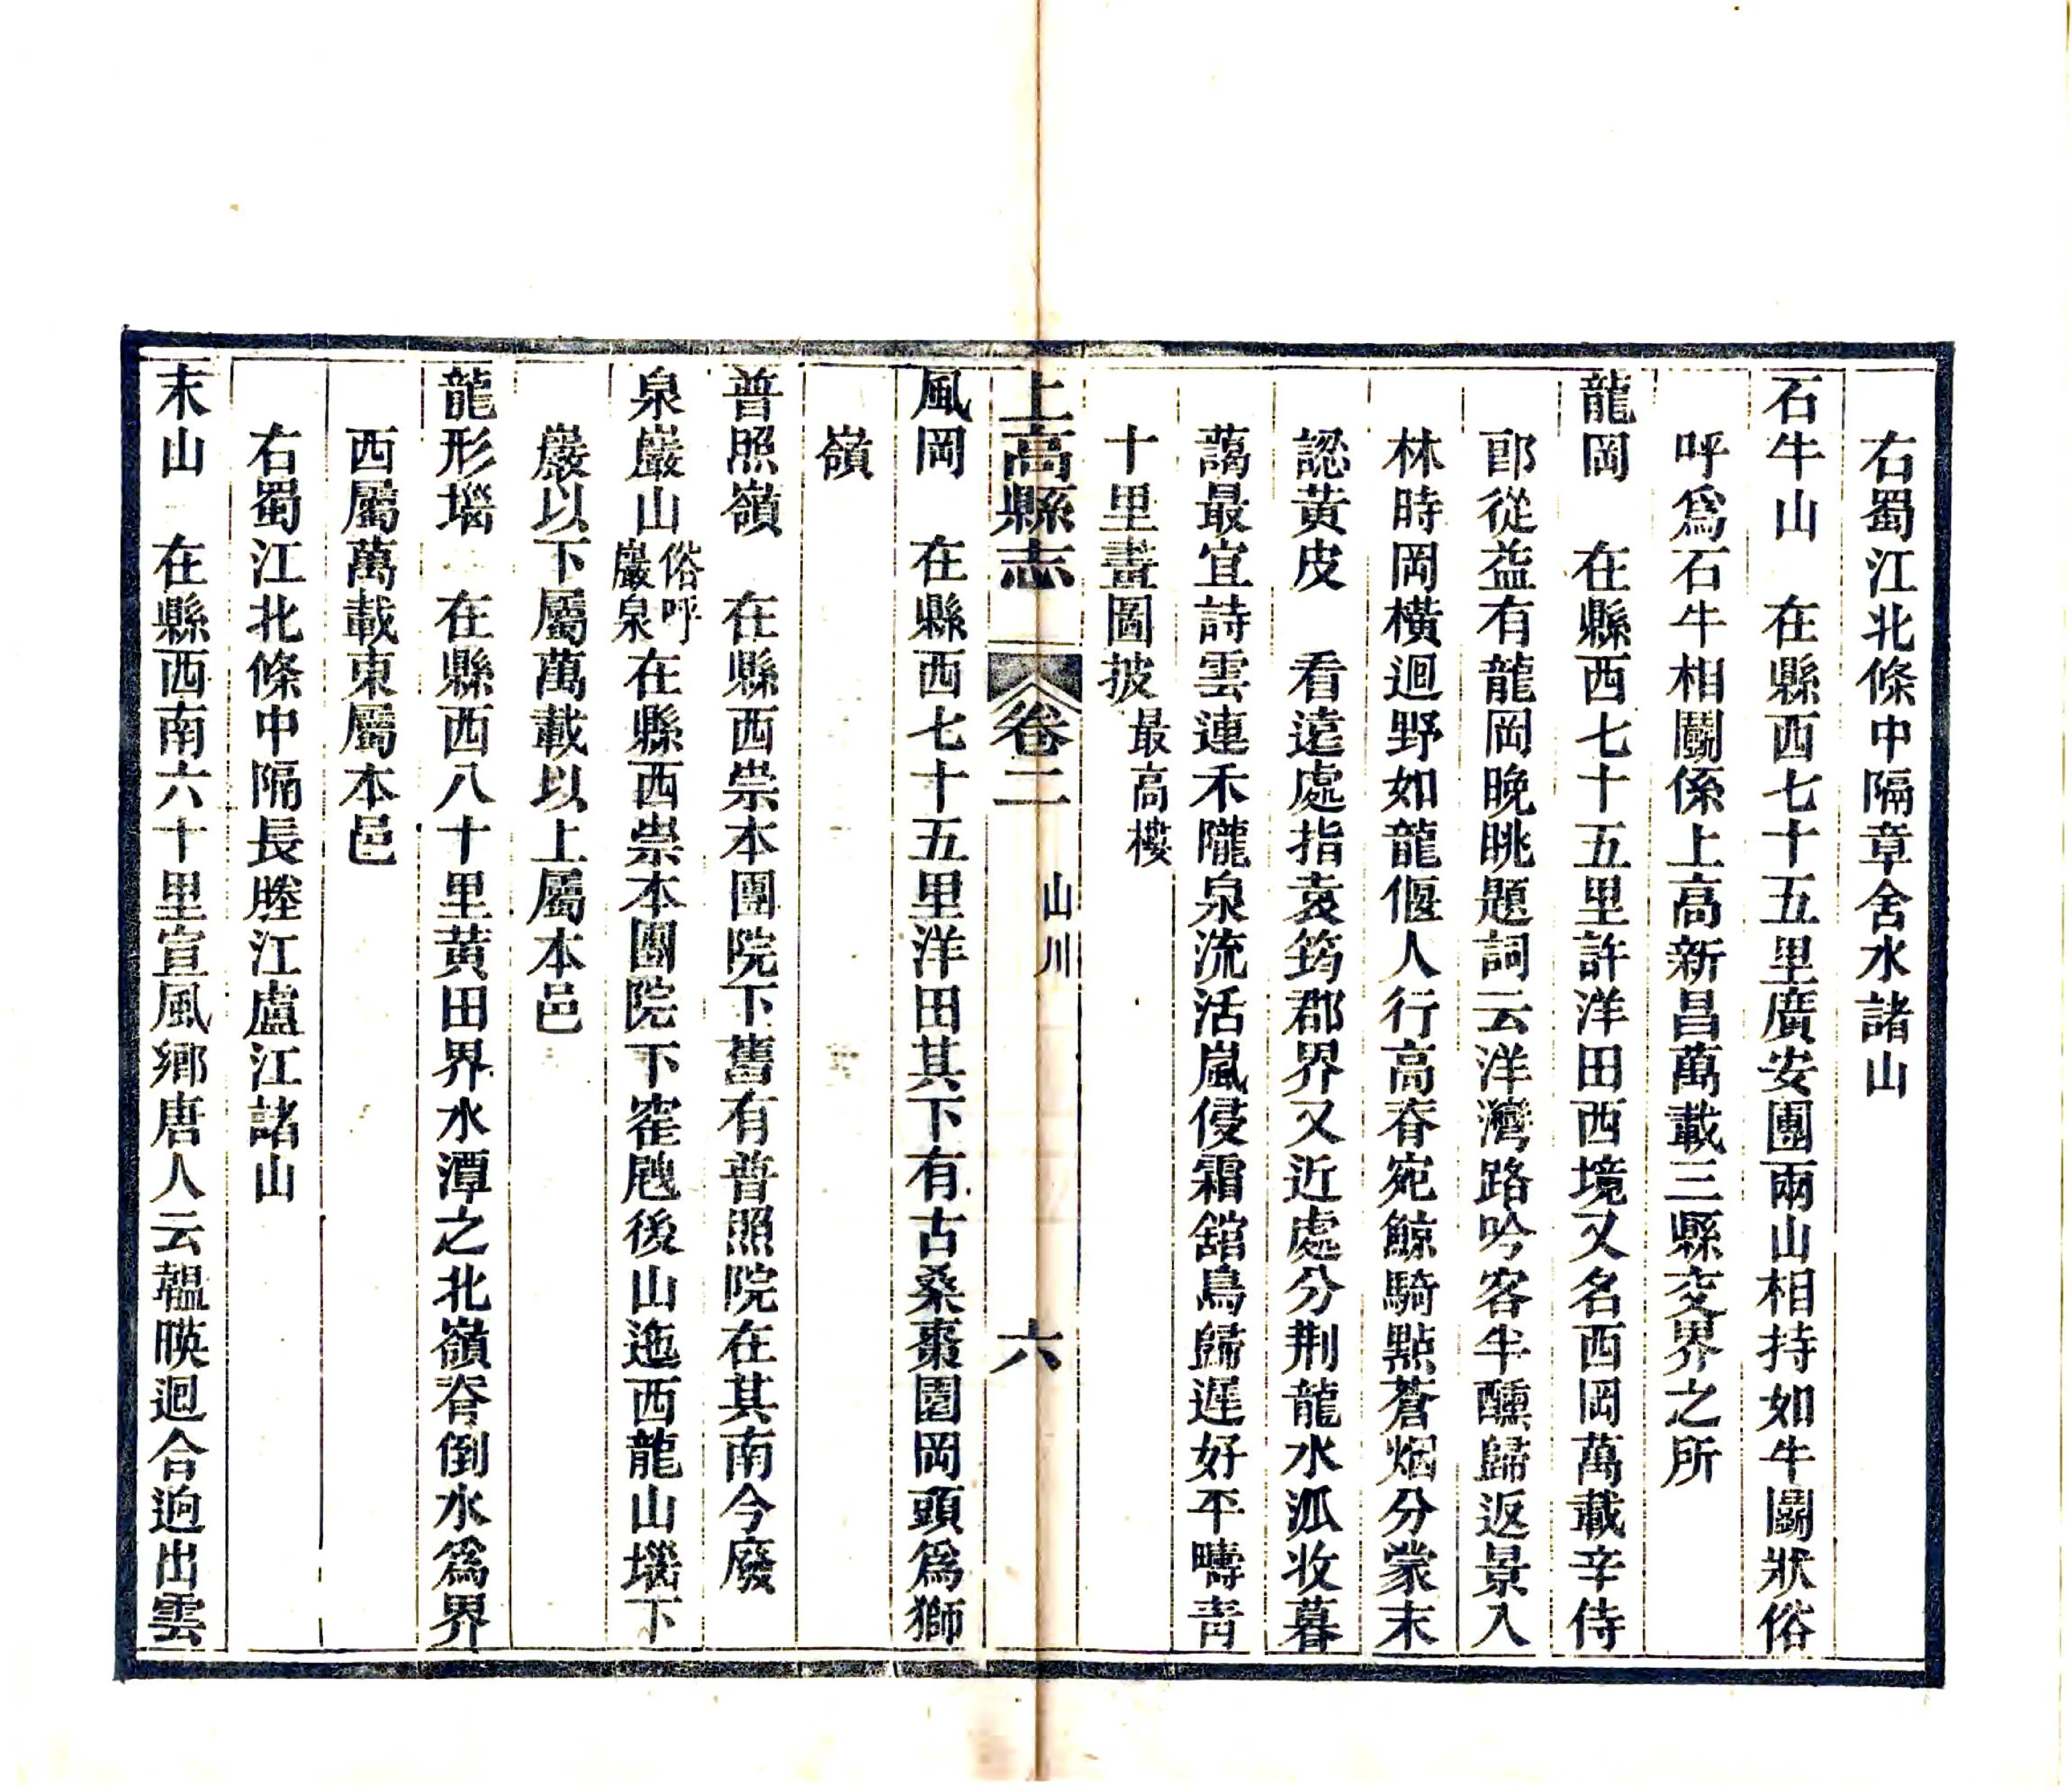 右蜀江北條中隔章舍水諸山
石牛山　在縣西七十五里廣安團兩山相持如牛鬭狀俗
呼爲石牛相鬭係上高新昌萬載三縣交界之所
龍岡　在縣西七十五里許洋田西境又名西岡萬載辛侍
郎從益有龍岡晚眺題詞云洋灣路吟客半醺歸返景入
林時岡橫迴野如龍偃人行高脊宛鯨騎點蒼烟分蒙末
認黃皮　看遠處指袁筠郡界又近處分荆龍水派收暮
藹最宜詩雲連禾隴泉流活嵐侵霜舘鳥歸遲好平疇青
十里畫圖披最高樓
上高縣志　卷二　山川　六
風岡　在縣西七十五里洋田其下有古桑棗園岡頭爲獅
嶺
普照嶺　在縣西崇本團院下舊有普照院在其南今廢
泉巖山俗呼巖泉在縣西崇本團院下窪尾後山迤西龍山墈下
巖以下屬萬載以上屬本邑
龍形墈　在縣西八十里黃田界水潭之北嶺脊倒水爲界
西屬萬載東屬本邑
右蜀江北條中隔長塍江盧江諸山
末山　在縣西南六十里宣風鄉唐人云韞暎迴合逈出雲